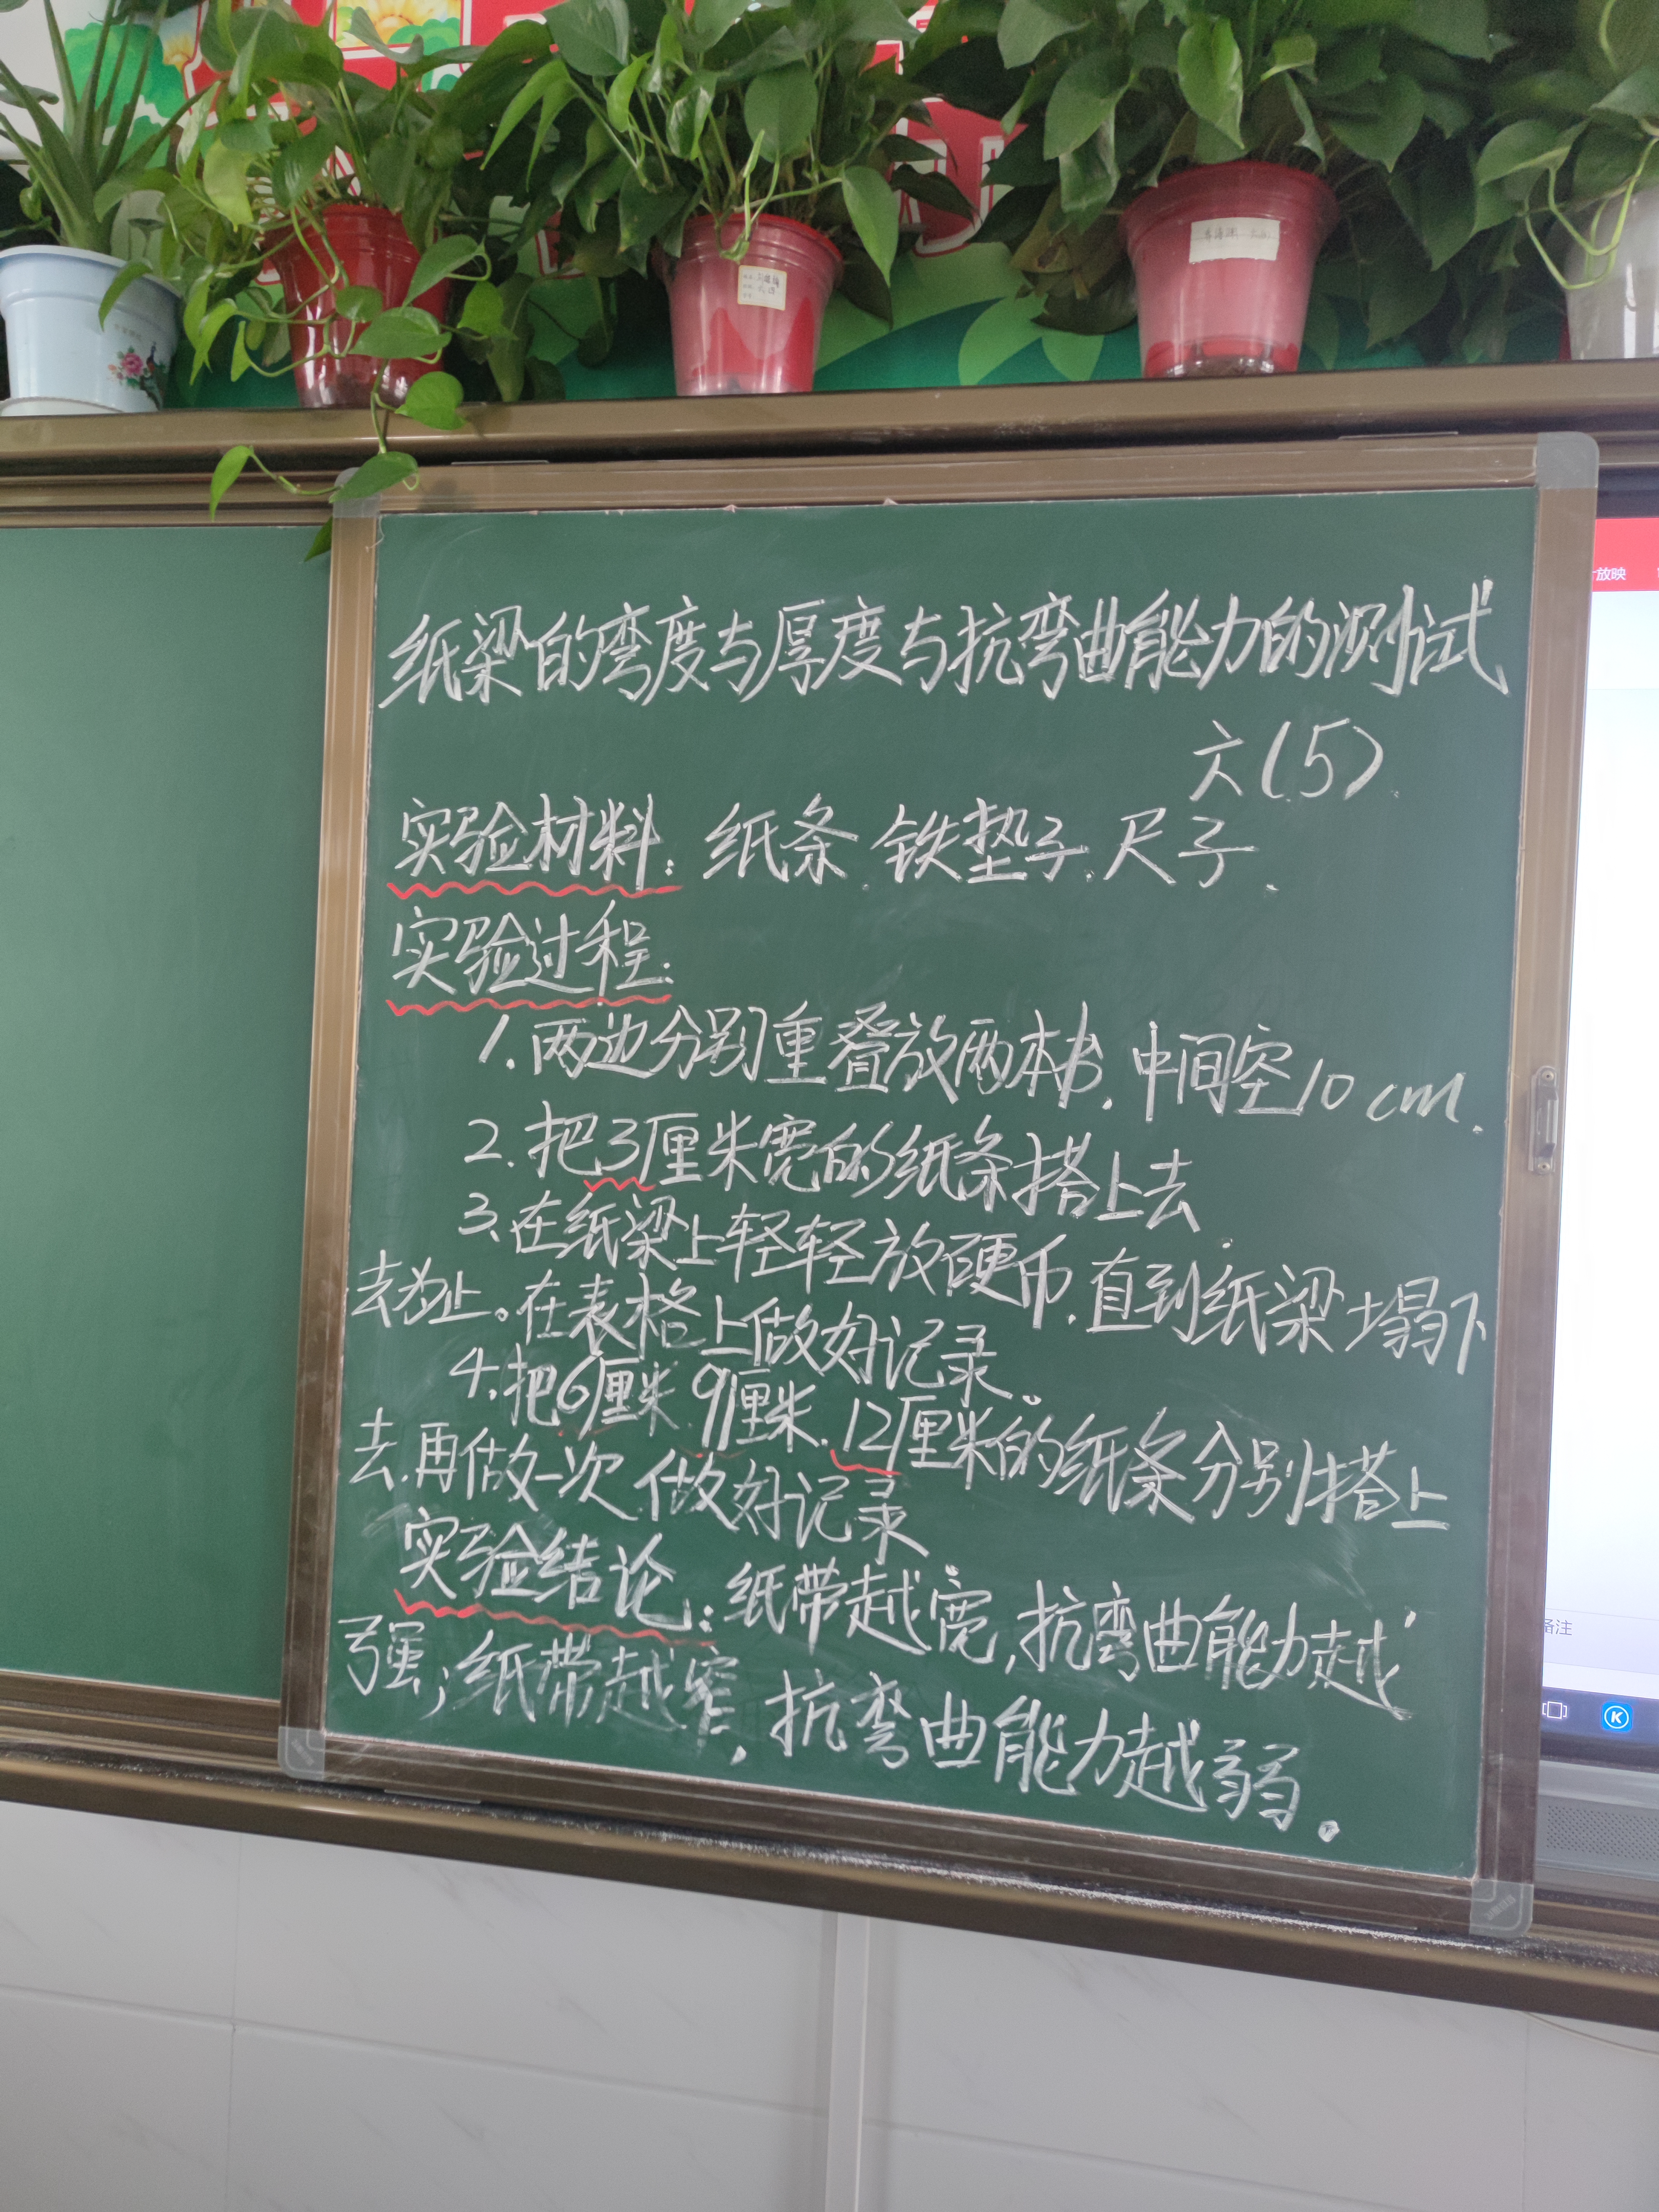 纸梁的弯度与厚度与抗弯曲能力的测试
六(5)
实验材料:纸条.铁垫子.尺子.
实验过程:
1.两边分别重叠放两本书.中间空10cm.
2.把3厘米宽的纸条搭上去
3.在纸梁上轻轻放硬币.直到纸梁塌下
去为止。在表格上做好记录。
4.把6厘米.9厘米.12厘米的纸条分别搭上
去.再做一次.做好记录
实验结论:纸带越宽,抗弯曲能力越
强;纸带越窄,抗弯曲能力越弱.
放映
备注
K